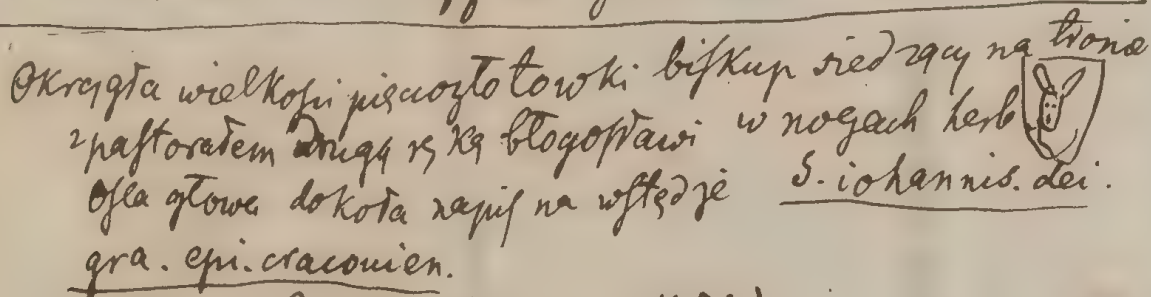 Okrągła wielkości pięciozłotowki biskup siedzący na tronie
z pastorałem drugą ręką błogosławi w nogach herb
Osla głowa dokoła napis na wstędze S. iohannis. dei.
gra. epi. cracovien.